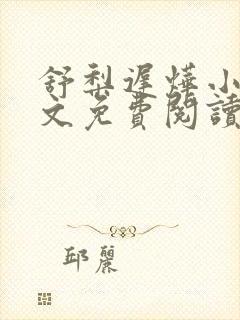 舒梨遲燁小
文免費閱讀
邱麗